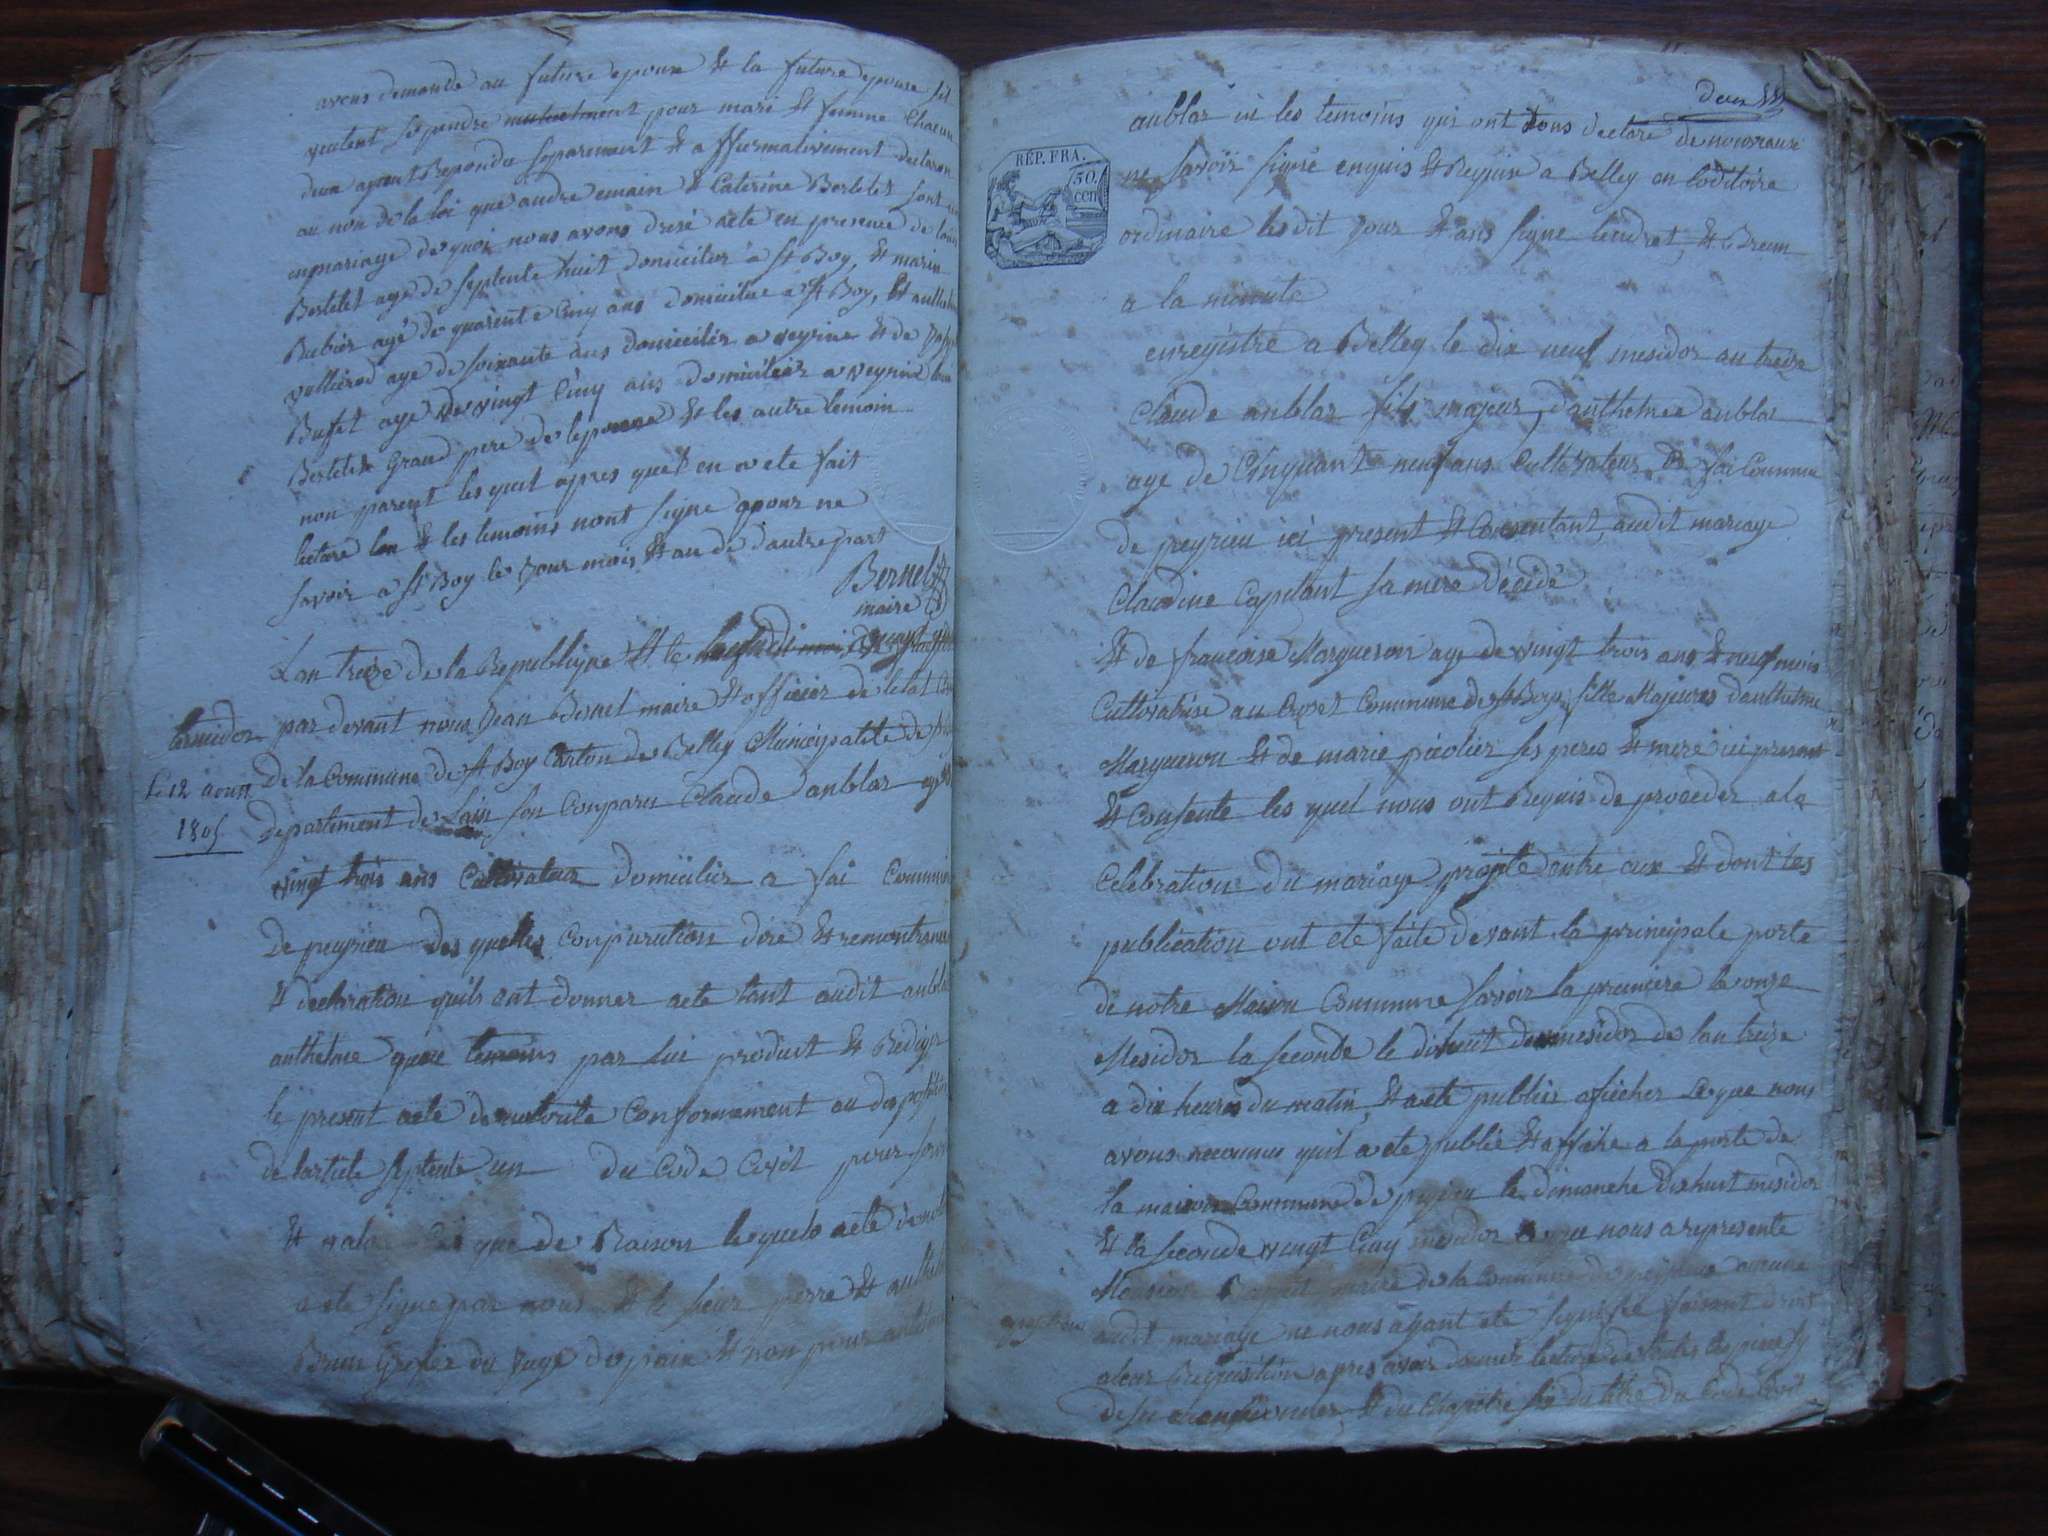 avons demande au future epoux & la future epouse sil
veulent se prendre mutuelment pour mari & femme Chacun
deux ayant Repondu separement & affirmativement declaron
au non de la loi que andre emain & Caterine Bertelet sont uni
en mariage de quoi nous avons dresé acte en presence de louis
Bertelet agé de septente huit domicilier à St Boy, & marin
Rubier agé de quarente Cinq ans domicilié à St Boy, & anthel
age de soixante ans domicilier a veyrine & de
Buffet age de vingt Cinq ans domicilier a veyrine
Bertelet Grand pere de lepouse & les autre temoin
non parent les quel apres quel en a ete fait
lecture & les temoins nont signe pour ne
savoir a St Boy le jour mois & an de dautre part
Bernel
maire
Lan treize de la Republique & le
termidor par devant nous Jean Bernel maire & officier de letat
de la Commune de St Boy Canton de Belley Municipalite de
Le 12 aout
1805
departement de Lain son Conparu Claude anblar agé
vingt trois ans Cultivateur domicilier a fai Commune
De peyrieu des quelles Conparution dire & remontrance
& declaration quils ont donner acte tant audit anblar
anthelme que temoins par lui produit & Rediger
le present acte de notorite Conformement au dispositi
de larticle septente un du Code Civil pour servir
& valoir que de Raison lequels acte de noto
a ete signe par nous & le sieur pierre & anthel
Brun Grefier du Juge de paix & non pour anthelme
deux
anblar ni les temoins qui ont tous declaré de nouveau
RÉP. FRA.
50.
cen
ne savoir signé enquis & Requis a Belley en loditoire
ordinaire lesdit jour & ans signe tendret, & Breun
a la minute
enregistré a Belley le dix neuf mesidor an treize
Claude anblar fils majeur danthelme anblar
age de Cinquant neuf ans Cultivateur de fai Commune
de peyrieu ici present & Consentant audit mariage
Claudine Capitant sa mere décidé
& de francoise Margueron age de vingt trois ans & neuf mois
Cultivatrise au Crozet Commune de St Boy fille Majeures danthelme
Margueron & de marie picolier ses peres & mere ici present
& Consente les quel nous ont Requis de proceder a la
Celebration du mariage projete entre eux & dont les
publication ont ete faite devant la principale porte
de notre Maison Commune savoir la premiere le onze
Mesidor la seconde le dixhuit de mesidor de lan treize
a dix heures du matin & acte publier aficher Ceque nous
avons reconnu quil a ete publie & affiche a la porte de
la maison Commune de peyrieu le dimanche dixhuit mesidor
& la seconde vingt Cinq mesidor Ceque nous a represente
Monsieur maire de la Commune de peyrieu aucune
audit mariage ne nous ayant ete signifie faisant droit
aleur Requisition apres avoir donner lecture de toutes les piece
& du Chapitre six du titre du Code Civil